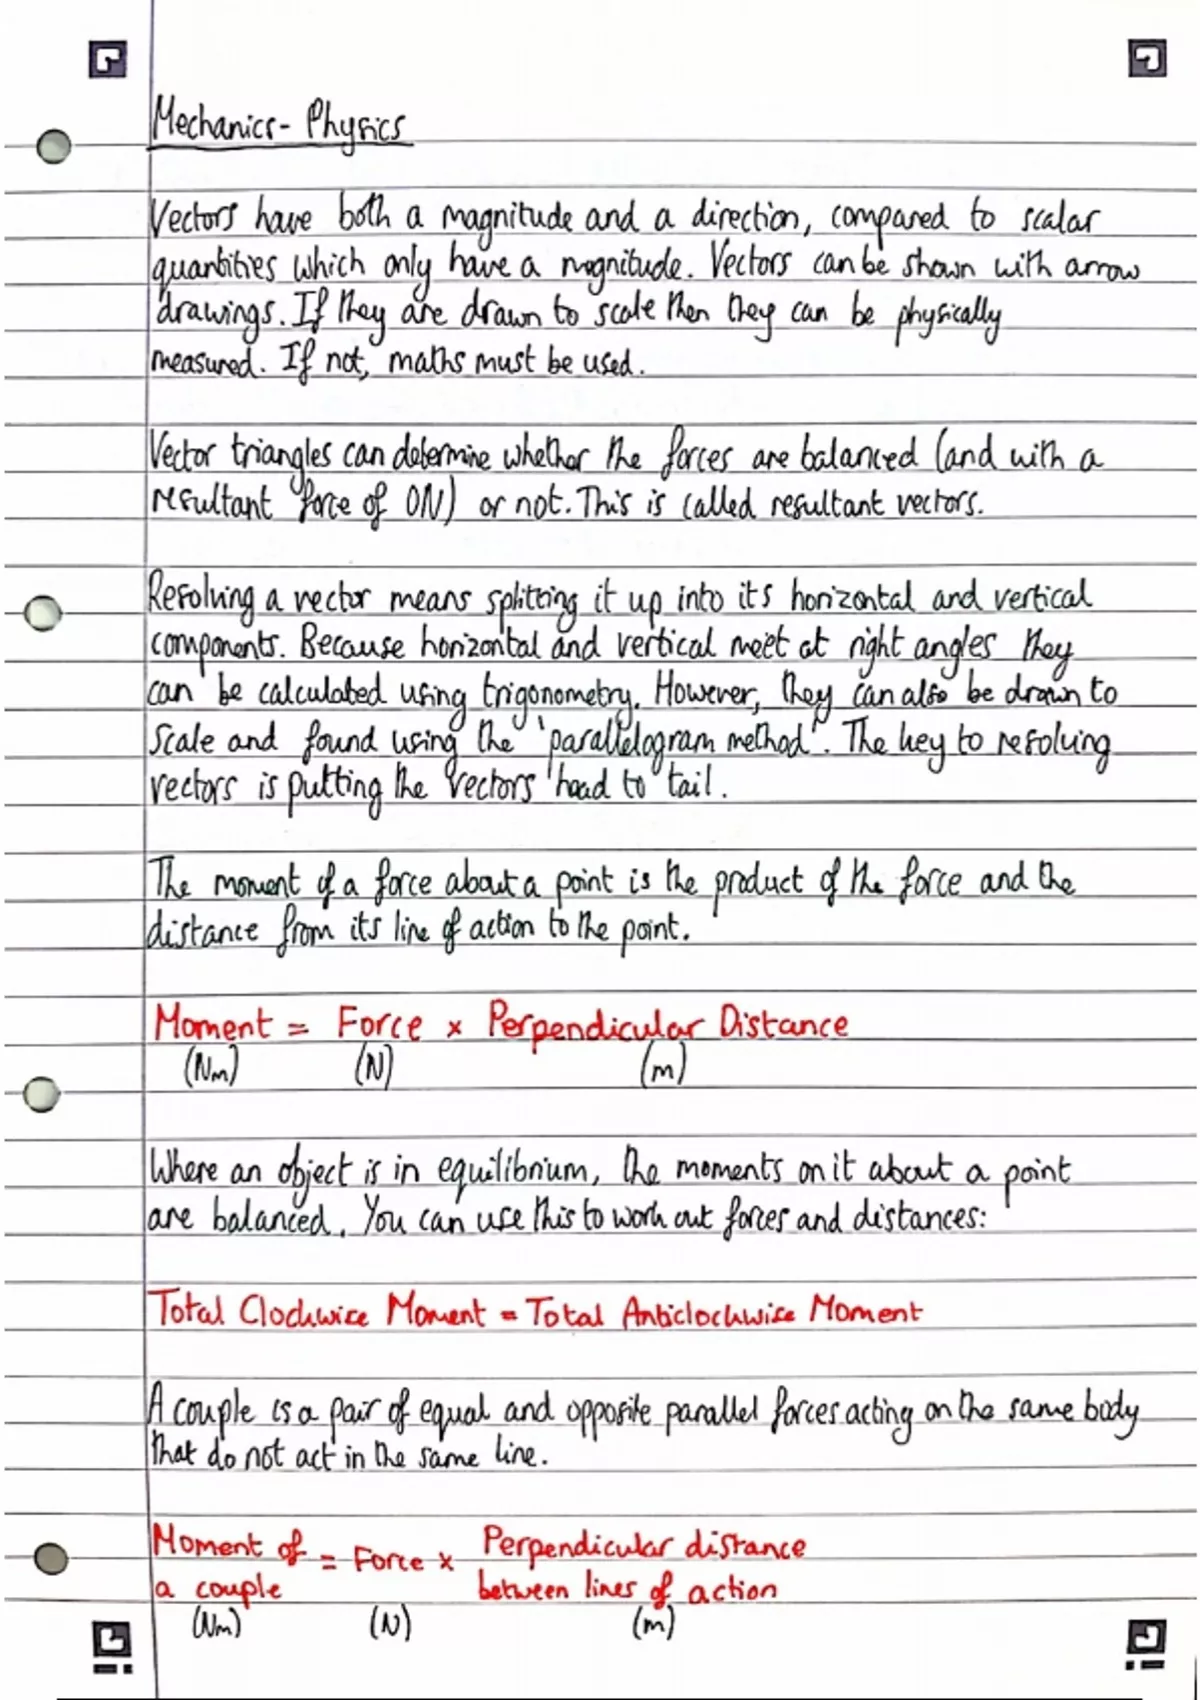 Mechanics - Physics
Vectors have both a magnitude and a direction, compared to scalar
quantities which only have a magnitude. Vectors can be shown with arrow
drawings. If they are drawn to scale then they can be physically
measured. If not, maths must be used.
Vector triangles can determine whether the forces are balanced (and with a
resultant force of 0N) or not. This is called resultant vectors.
Resolving a vector means splitting it up into its horizontal and vertical
components. Because horizontal and vertical meet at right angles they
can be calculated using trigonometry. However, they can also be drawn to
scale and found using the 'parallelogram method'. The key to resolving
vectors is putting the vectors 'head to tail.
The moment of a force about a point is the product of the force and the
distance from its line of action to the point.
Moment = Force × Perpendicular Distance
(Nm) (N) (m)
Where an object is in equilibrium, the moments on it about a point
are balanced. You can use this to work out forces and distances:
Total Clockwise Moment = Total Anticlockwise Moment
A couple is a pair of equal and opposite parallel forces acting on the same body
that do not act in the same line.
Moment of = Force × Perpendicular distance
a couple between lines of action
(Nm) (N) (m)